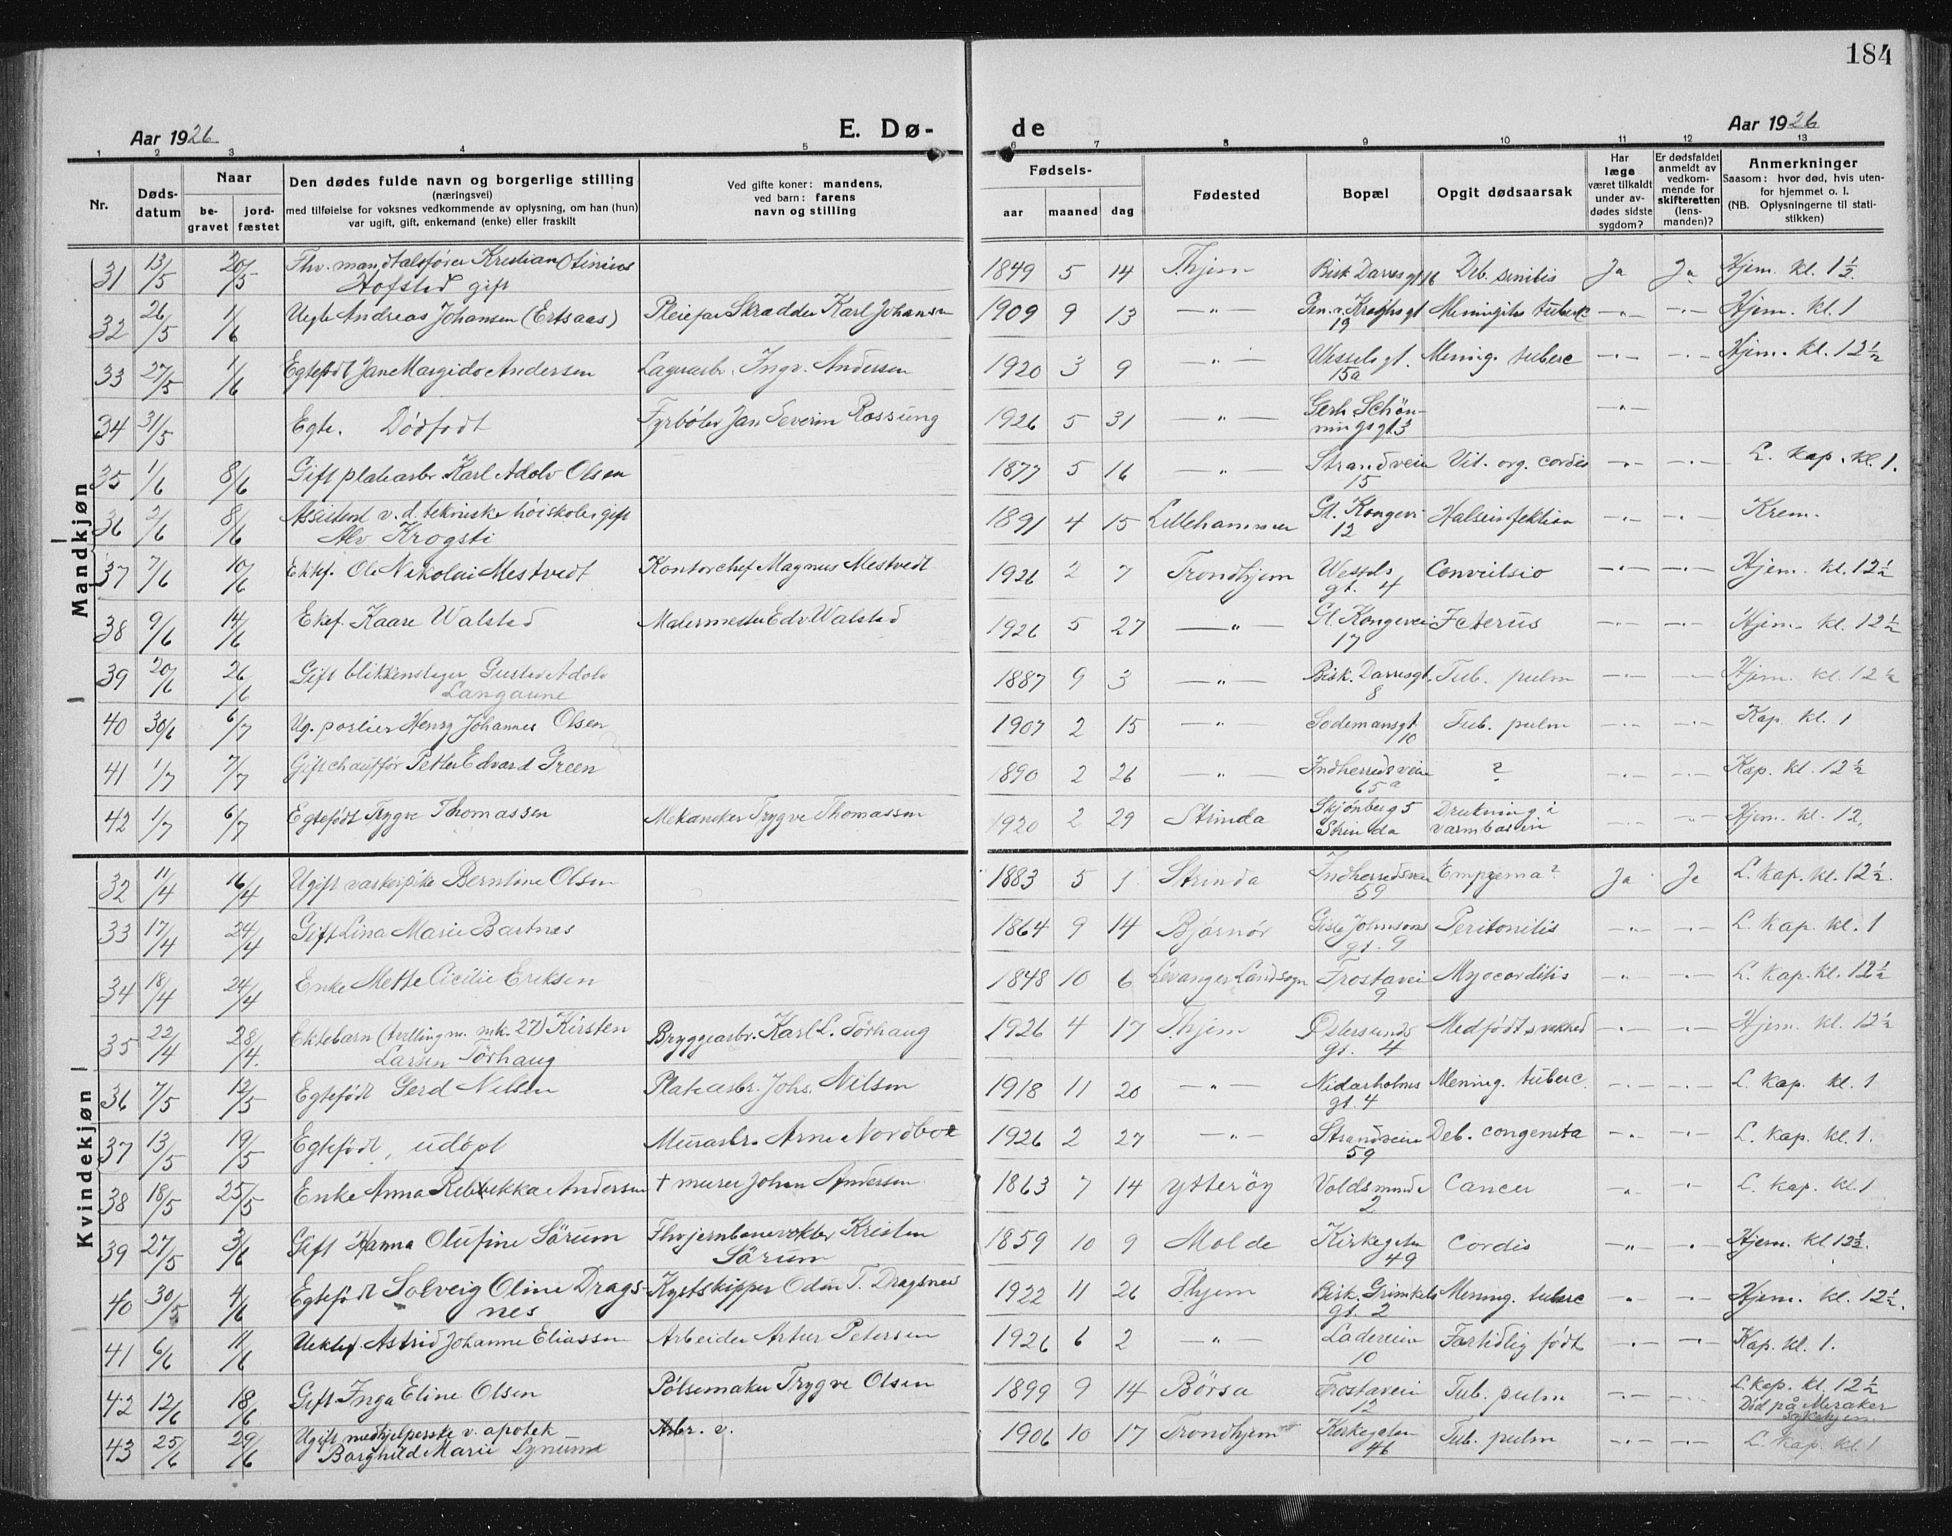 184
Aar 1926 E. Dø- de Aar 1926
1 2 3 4 5 6 7 8 9 10 11 12 13
Nr. Døds-datum Naar be-gravet jord-fæstet Den dødes fulde navn og borgerlige stilling (næringsvei) med tilføielse for voksnes vedkommende av oplysning, om han (hun) var ugift, gift, enkemand (enke) eller fraskilt Ved gifte koner: mandens, ved barn: farens navn og stilling Fødsels- aar maaned dag Fødested Bopæl Opgit dødsaarsak Har læge været tilkaldt under av-dødes sidste sygdom? Er dødsfaldet anmeldt av vedkom-mende for skifteretten (lens-manden)? Anmerkninger Saasom: hvor død, hvis uten-for hjemmet o. l. (NB. Oplysningerne til stati-stikken)
Mandkjøn
31 13/5 20/5 Fhv. mandtalsfører Kristian Otinius Hofstad gift 1849 5 14 Thjem Bisk. Darresgt 16 Deb. senilis Ja Ja Hjem. kl. 1 1/2
32 26/5 1/6 Uegte Andreas Johansen (Ertsaas) Pleiefar Skrædder Karl Johansen 1909 9 13 —"— Gen. v. Kroghsgt 19 Meningitis tuberc —"— —"— Hjem. kl. 1
33 27/5 1/6 Egtefødt Jan Margido Andersen Lagerarb. Ingv. Andersen 1920 3 9 —"— Wesselsgt. 15a Mening. tuberc —"— —"— Hjem. kl. 12 1/2
34 31/5 Egte. Dødfødt Fyrbøter Jan Severin Rossung 1926 5 31 —"— Gerh. Schøn-ningsgt. 3 —"—
35 1/6 8/6 Gift platearbr Karl Adolv Olsen 1877 5 16 —"— Strandveien 15 Vit. org. cordis —"— —"— L. kap. kl. 1.
36 2/6 8/6 Assistent v. d. tekniske høiskole, gift Alv Krogsti 1891 4 15 Lillehammer Gl. Kongevei 12 Halsinfektion —"— —"— Krem.
37 7/6 10/6 Ektef. Ole Nikolai Mestvedt Kontorchef Magnus Mestvedt 1926 2 7 Trondhjem Wessels gt. 4 Convulsio —"— —"— Hjem. kl. 12 1/2
38 9/6 14/6 Ektef. Kaare Walstad Malermester Edv. Walstad 1926 5 27 —"— Gl. Kongevei 17 Icterus —"— —"— Hjem. kl. 12 1/2
39 20/6 26/6 Gift blikkenslager Gustav Adolv Langaune 1887 9 3 —"— Bisk. Darresgt. 8 Tub. pulm —"— —"— Hjem. kl. 12 1/2
40 30/6 6/7 Ug. portier Henry Johannes Olsen 1907 2 15 —"— Sodemansgt. 10 Tub. pulm —"— —"— Kap. kl. 1
41 1/7 7/7 Gift chauffør Petter Edvard Green 1890 2 26 —"— Indherredsveien 65a ? —"— —"— Kap. kl. 12 1/2
42 1/7 6/7 Egtefødt Trygve Thomassen Mekaniker Trygve Thomassen 1920 2 29 Strinda Skjønberg 5 Strinda Drukning i varmbassin —"— —"— Hjem. kl. 12.
Kvindekjøn
32 11/4 16/4 Ugift vaskepike Berntine Olsen 1883 5 1 Strinda Indherredsveien 59 Empyema? Ja Ja L. kap. kl. 12 1/2.
33 17/4 24/4 Gift Lina Marie Bartnes 1864 9 14 Bjørnør Gisle Johnsons gt. 9 Peritonitis —"— —"— L. kap. kl. 1
34 18/4 24/4 Enke Mette Cicilie Eriksen 1848 10 6 Levanger Landsogn Frostavei 9 Myocorditis —"— —"— L. kap. kl. 12 1/2
35 22/4 28/4. Ektebarn (tvilling m. mk. 27) Kirsten Larsen Tørhaug Bryggearbr. Karl L. Tørhaug 1926 4 17 Thjem Østersunds gt. 4 Medfødt svakhed —"— —"— Hjem. kl. 12 1/2
36 7/5 12/5 Egtefødt Gerd Nilsen Platearbr. Johs. Nilsen 1918 11 20 —"— Nidarholms gt. 4 Mening. tuberc. —"— —"— L. kap. kl. 1
37 13/5 19/5 Egtefødt, udøpt Murarbr. Arne Nordbot 1926 2 27 —"— Strandveien 59 Deb. congenita —"— —"— L. kap. kl. 1.
38 18/5 25/5 Enke Anna Rebekka Andersen + murer Johan Andersen 1863 7 14 Ytterøy Voldsminde 2 Cancer " —"— L. kap. kl. 1
39 27/5 3/6 Gift Hanna Olufine Sørum Fhv jernbanevokter Kristen Sørum 1859 10 9 Molde Kirkegaten 49 Cordis " " Hjem. kl 12 1/2.
40 30/5 4/6 Egtefødt Solveig Oline Drags-nes Kystskipper Odin T. Dragsnes 1922 11 26 Thjem Bisk. Grimkels gt. 2 Mening. tuberc " —"— Hjem. kl. 12 1/2.
41 6/6 11/6 Uektef. Astrid Johanne Eliassen Arbeider Artur Petersen 1926 6 2 —"— Ladeveien 10 Fortidlig født —"— —"— Kap. kl. 1.
42 12/6 18/6 Gift Inga Eline Olsen Pølsemaker Trygve Olsen 1899 9 14 Børsa Frostavein 12 Tub. pulm —"— —"— L. kap. kl. 12 1/2 Død på Meraker
43 25/6 29/6 Ugift medhjelperske v. apotek Borghild Marie Lynum Arbr. v. 1906 10 17 Trondhjem Kirkegaten 46 Tub. pulm —"— —"— L. kap. kl. 1